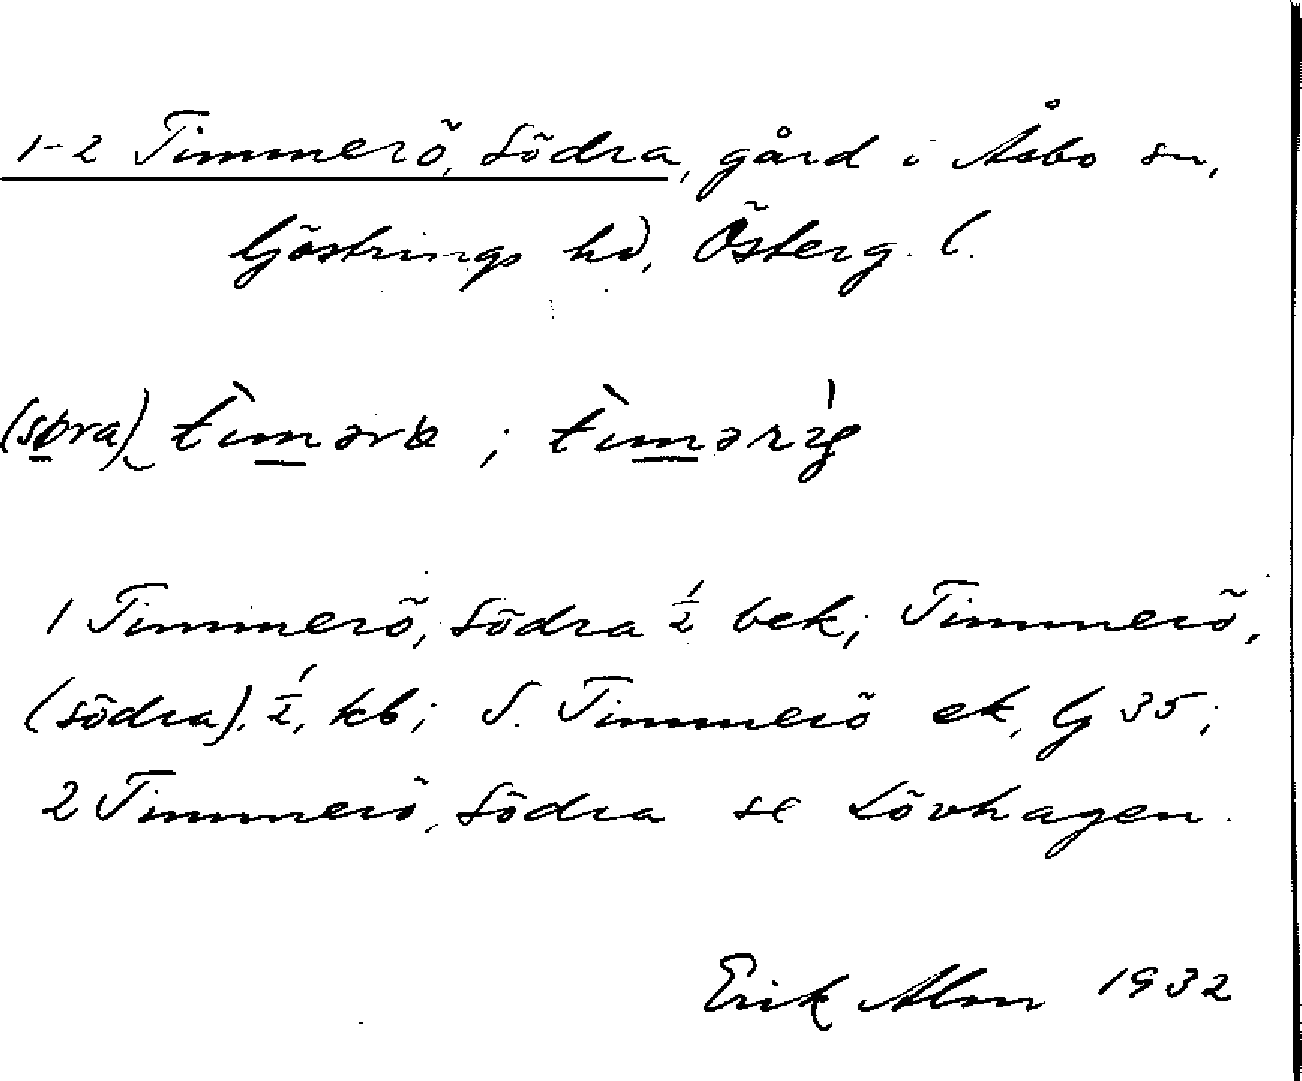 1-2 Timmerö, Södra, gård i Åsbo sn,
Göstrings hd, Österg. l.
1 Timmerö, Södra ½ bek; Timmerö,
(södra), ½, kb; S. Timmerö ek, G 35;
2 Timmerö, Södra se Lövhagen.
Erik Alm 1932